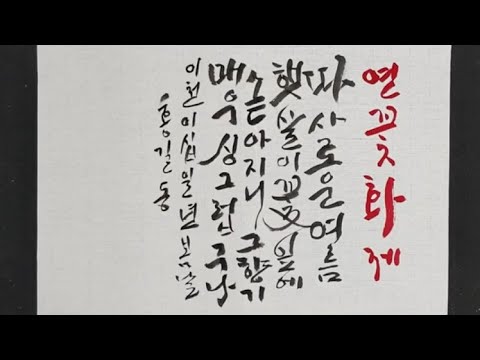 연꽃화제
따사로운 여름
햇살이 꽃잎에
쏟아지니 그 향기
매우 싱그럽구나
이천이십일년 봄날
홍길동